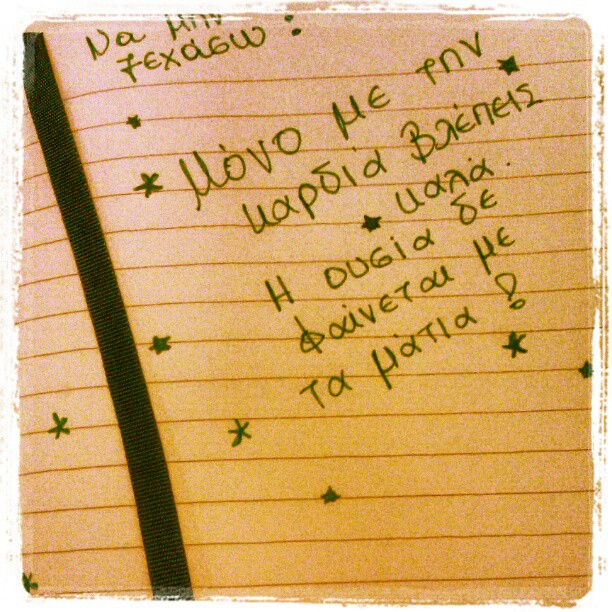 Να μην
ξεχάσω :
Μόνο με την
καρδιά βλέπεις
καλά.
Η ουσία δε
φαίνεται με
τα μάτια !